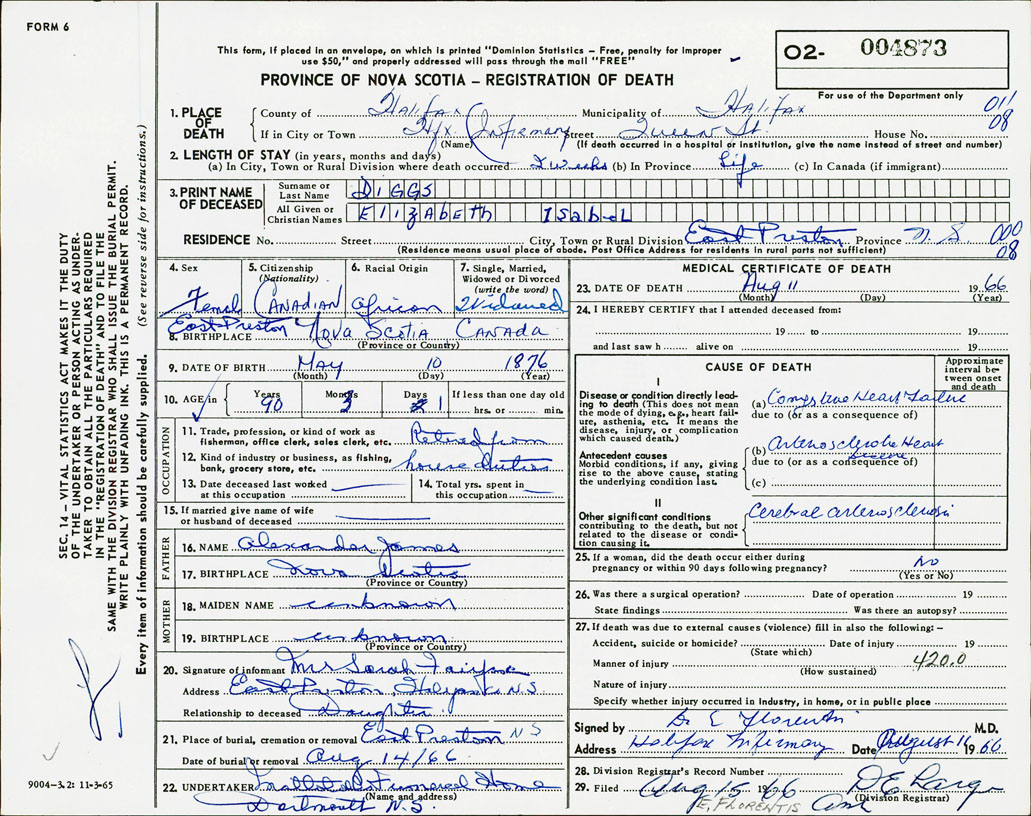 FORM 6
This form, if placed in an envelope, on which is printed "Dominion Statistics – Free, penalty for improper
use $50," and properly addressed will pass through the mail "FREE"
PROVINCE OF NOVA SCOTIA – REGISTRATION OF DEATH
O2- 004873
For use of the Department only
1. PLACE OF DEATH
County of Halifax Municipality of Halifax 011
If in City or Town Hfx. Infirmary Street Queen St. House No. 08
(Name) (If death occurred in a hospital or institution, give the name instead of street and number)
2. LENGTH OF STAY (in years, months and days)
(a) In City, Town or Rural Division where death occurred 2 weeks (b) In Province Life (c) In Canada (if immigrant)
3. PRINT NAME OF DECEASED
Surname or Last Name DIGGS
All Given or Christian Names ElizAbEth IsabeL
RESIDENCE No. Street City, Town or Rural Division East Preston Province N.S 000
(Residence means usual place of abode. Post Office Address for residents in rural parts not sufficient) 08
4. Sex Female
5. Citizenship (Nationality) Canadian
6. Racial Origin African
7. Single, Married, Widowed or Divorced (write the word) Widowed
8. BIRTHPLACE East Preston Nova Scotia CANADA
(Province or Country)
9. DATE OF BIRTH May 10 1876
(Month) (Day) (Year)
10. AGE in Years 90 Months 3 Days 1 If less than one day old
hrs. or min.
OCCUPATION
11. Trade, profession, or kind of work as fisherman, office clerk, sales clerk, etc. Retired from
12. Kind of industry or business, as fishing, bank, grocery store, etc. house duties
13. Date deceased last worked at this occupation
14. Total yrs. spent in this occupation
15. If married give name of wife or husband of deceased
FATHER
16. NAME Alexander James
17. BIRTHPLACE Nova Scotia
(Province or Country)
MOTHER
18. MAIDEN NAME unknown
19. BIRTHPLACE unknown
(Province or Country)
20. Signature of informant Mrs Sarah Fairfax
Address East Preston, Halifax Co N.S
Relationship to deceased Daughter
21. Place of burial, cremation or removal East Preston N S
Date of burial or removal Aug 14/66
22. UNDERTAKER Funeral Home
(Name and address)
Dartmouth N.S
MEDICAL CERTIFICATE OF DEATH
23. DATE OF DEATH Aug 11 19 66
(Month) (Day) (Year)
24. I HEREBY CERTIFY that I attended deceased from:
19 to 19
and last saw h alive on 19
CAUSE OF DEATH
Approximate interval between onset and death
I
Disease or condition directly leading to death (This does not mean the mode of dying, e.g., heart failure, asthenia, etc. It means the disease, injury, or complication which caused death.)
(a) Congestive Heart Failure
due to (or as a consequence of)
Antecedent causes
Morbid conditions, if any, giving rise to the above cause, stating the underlying condition last.
(b) Arteriosclerotic Heart Disease
due to (or as a consequence of)
(c)
II
Other significant conditions contributing to the death, but not related to the disease or condition causing it.
Cerebral arteriosclerosis
25. If a woman, did the death occur either during pregnancy or within 90 days following pregnancy? No
(Yes or No)
26. Was there a surgical operation? Date of operation 19
State findings Was there an autopsy?
27. If death was due to external causes (violence) fill in also the following: –
Accident, suicide or homicide? Date of injury 19
(State which)
Manner of injury 420.0
(How sustained)
Nature of injury
Specify whether injury occurred in industry, in home, or in public place
Signed by Dr E Florentis M.D.
Address Halifax Infirmary Date August 11 19 66
28. Division Registrar's Record Number
29. Filed Aug 15 1966
E. FLORENTIS
(Division Registrar)
SEC. 14 – VITAL STATISTICS ACT MAKES IT THE DUTY
OF THE UNDERTAKER OR PERSON ACTING AS UNDER-
TAKER TO OBTAIN ALL THE PARTICULARS REQUIRED
IN THE "REGISTRATION OF DEATH" AND TO FILE THE
SAME WITH THE DIVISION REGISTRAR WHO SHALL ISSUE THE BURIAL PERMIT.
WRITE PLAINLY WITH UNFADING INK. THIS IS A PERMANENT RECORD.
Every item of information should be carefully supplied. (See reverse side for instructions.)
9004-3.2: 11-3-65